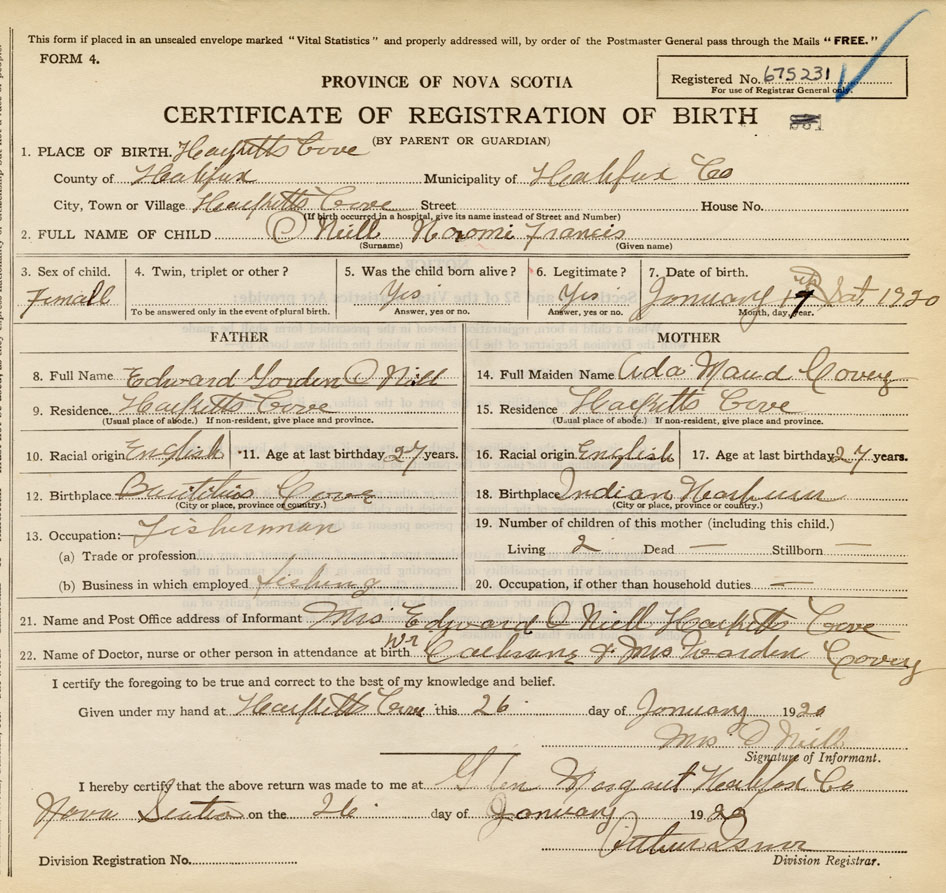 This form if placed in an unsealed envelope marked "Vital Statistics" and properly addressed will, by order of the Postmaster General pass through the Mails "FREE."
FORM 4.
PROVINCE OF NOVA SCOTIA
Registered No. 675231
For use of Registrar General only.
CERTIFICATE OF REGISTRATION OF BIRTH
(BY PARENT OR GUARDIAN)
1. PLACE OF BIRTH. Hacketts Cove
County of Halifax Municipality of Halifax Co
City, Town or Village Hacketts Cove Street House No.
(If birth occurred in a hospital, give its name instead of Street and Number)
2. FULL NAME OF CHILD O Neill Naomi Francis
(Surname) (Given name)
3. Sex of child. 4. Twin, triplet or other? 5. Was the child born alive? 6. Legitimate? 7. Date of birth.
Femall Yis Yis January 17th Sat, 1920
To be answered only in the event of plural birth. Answer, yes or no. Answer, yes or no. Month, day, year.
FATHER MOTHER
8. Full Name Edward Gorden O Neill 14. Full Maiden Name Ada Maud Covey
9. Residence. Hacketts Cove 15. Residence Hacketts Cove
(Usual place of abode.) If non-resident, give place and province. (Usual place of abode.) If non-resident, give place and province.
10. Racial origin English *11. Age at last birthday 27 years. 16. Racial origin English 17. Age at last birthday 27 years.
12. Birthplace Cove 18. Birthplace Indian
(City or place, province or country.) (City or place, province or country.)
13. Occupation:— Fisherman 19. Number of children of this mother (including this child.)
(a) Trade or profession Living 2 Dead — Stillborn —
(b) Business in which employed fishing 20. Occupation, if other than household duties. —
21. Name and Post Office address of Informant Mrs Edward O Neill Hacketts Cove
22. Name of Doctor, nurse or other person in attendance at birth Cochrane & Mrs Warden Covey
I certify the foregoing to be true and correct to the best of my knowledge and belief.
Given under my hand at Hacketts Cove this 26 day of January 1920
Mrs O Neill
Signature of Informant.
I hereby certify that the above return was made to me at Glen Margaret Halifax Co
Nova Scotia on the 26 day of January 1920
Arthur
Division Registration No. Division Registrar.